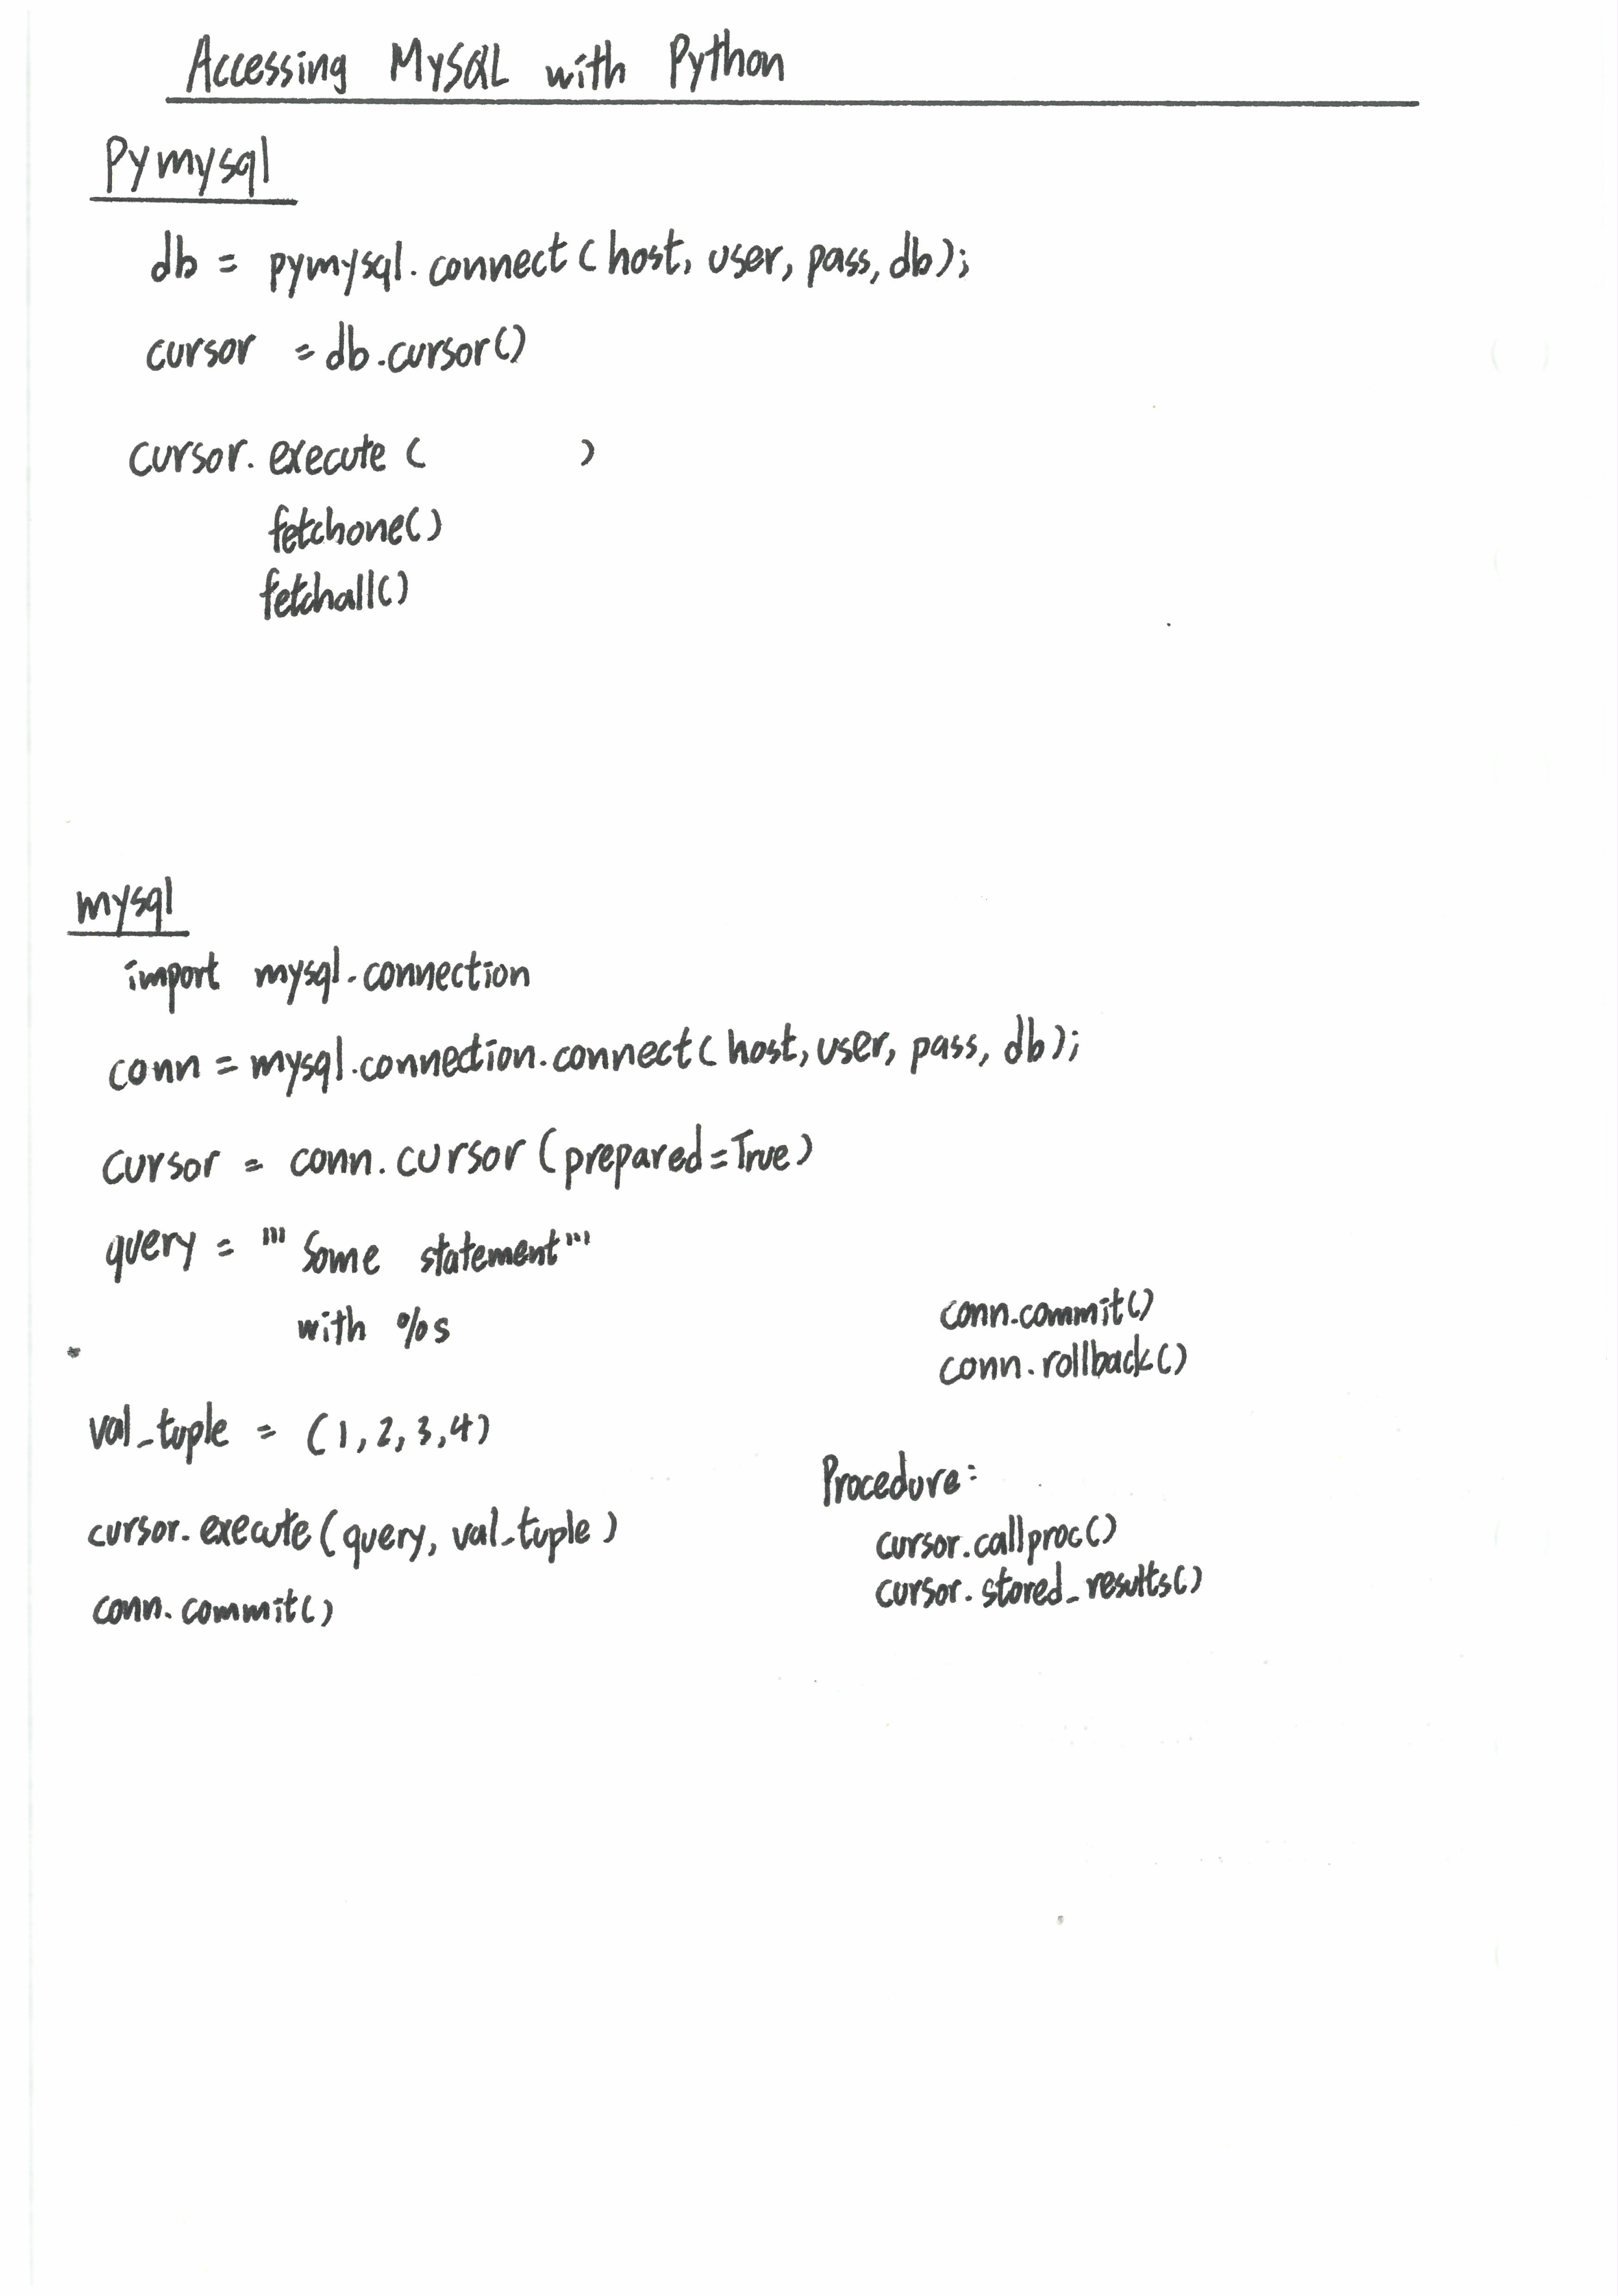 Accessing MySQL with Python
Pymysql
db = pymysql.connect(host, user, pass, db);
cursor = db.cursor()
cursor.execute( )
fetchone()
fetchall()
mysql
import mysql.connection
conn = mysql.connection.connect(host, user, pass, db);
cursor = conn.cursor(prepared=True)
query = """ Some statement"""
with %s
conn.commit()
conn.rollback()
val_tuple = (1,2,3,4)
Procedure:
cursor.execute(query, val_tuple)
cursor.callproc()
cursor.stored_results()
conn.commit()